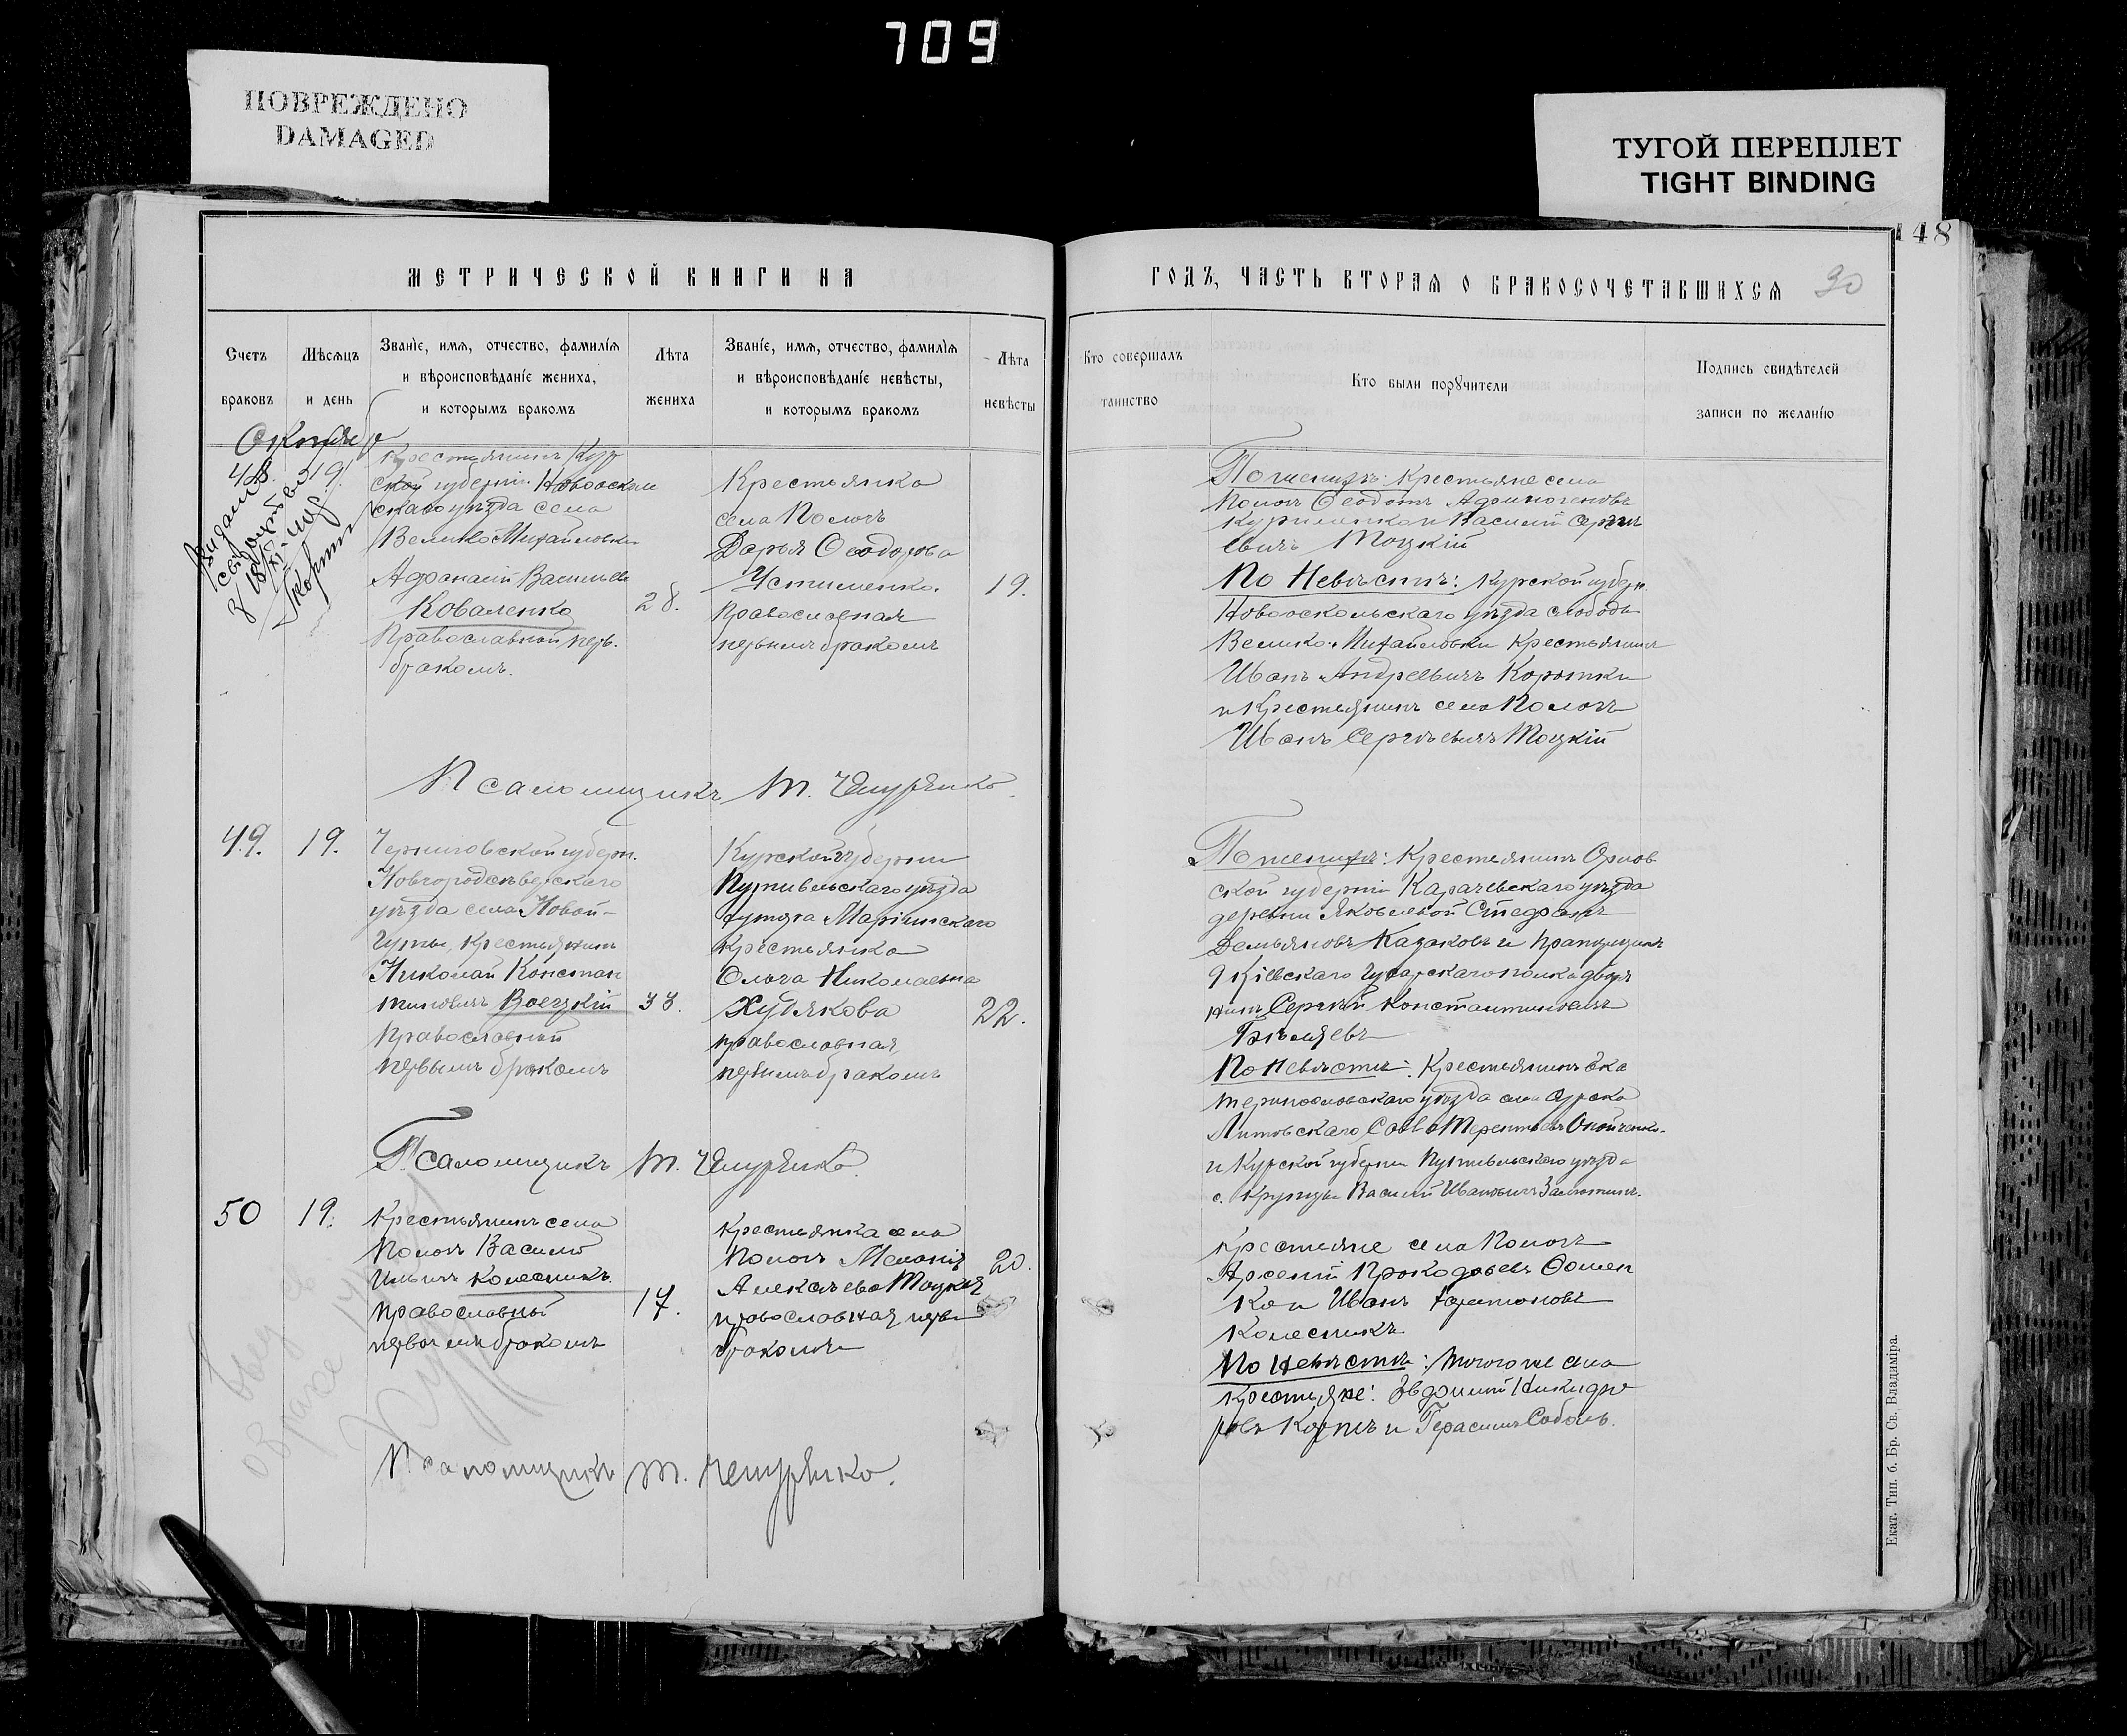 709
ПОВРЕЖДЕНО
DAMAGED
ТУГОЙ ПЕРЕПЛЕТ
TIGHT BINDING
148
МЕТРИЧЕСКОЙ КНИГИ НА
ГОДЪ, ЧАСТЬ ВТОРАЯ О БРАКОСОЧЕТАВШИХСЯ
30
Счетъ
браковъ
Мѣсяцъ
и день
Званіе, имя, отчество, фамилія
и вѣроисповѣданіе жениха,
и которымъ бракомъ
Лѣта
жениха
Званіе, имя, отчество, фамилія
и вѣроисповѣданіе невѣсты,
и которымъ бракомъ
Лѣта
невѣсты
Кто совершалъ
таинство
Кто были поручители
Подпись свидѣтелей
записи по желанію
Октябрь
48.
19.
Крестьянинъ Кур
ской губерніи Новооскол
скаго уѣзда села
Велико Михайловки
Афанасій Васильевъ
Коваленко
Православный перв.
бракомъ.
28.
Крестьянка
села Пологъ
Дарья Ѳеодорова
Устименко.
православная
первымъ бракомъ
19.
По женихѣ: Крестьяне села
Пологъ Ѳеодотъ
и Василій Сергѣ
евичъ Тоцкій
По Невѣстѣ: Курской губерн.
Новооскольскаго уѣзда слободы
Велико-Михайловки Крестьянинъ
Иванъ Андреевичъ
и Крестьянинъ села Пологъ
Иванъ Сергѣевичъ Тоцкій
Псаломщикъ Т. Чемуренко.
49.
19.
Черниговской губерн.
Новгородсѣверскаго
уѣзда села Новой-
Гуты, крестьянинъ
Николай Констан
тиновичъ Воецкій
Православный
первымъ бракомъ
33.
Курской губерніи
Путивльскаго уѣзда
хутора Маріинскаго
крестьянка
Ольга Николаевна
Худякова
православная,
первымъ бракомъ
22.
По женихѣ: Крестьянинъ Орлов
ской губерніи Карачевскаго уѣзда
деревни Яковлевой Стефанъ
Демьяновъ Казаковъ и прапорщикъ
9 Кіевскаго Гусарскаго полка двора
нинъ Сергѣй Константиновичъ
Бѣляевъ
По Невѣстѣ: Крестьянинъ Ека
теринославскаго уѣзда села
Литовскаго Савва Терентьевъ
и Курской губерніи Путивльскаго уѣзда
с. Василій Ивановичъ
Псаломщикъ Т. Чемуренко.
50
19.
Крестьянинъ села
Пологъ Василій
Ильичъ Колесникъ.
православный
первымъ бракомъ
17.
крестьянка села
Пологъ Меланія
Алексѣева Тоцкая
православная первы
бракомъ
20.
крестьяне села Пологъ
Арсеній Прокофьевъ Ѳомен
ко и Иванъ Харитоновъ
Колесникъ
По Невѣстѣ: того же села
крестьяне: Евдокимъ Никифо
ровъ и Герасимъ Соболь.
Псаломщикъ Т. Чемуренко.
Екат. Тип. б. Бр. Св. Владиміра.